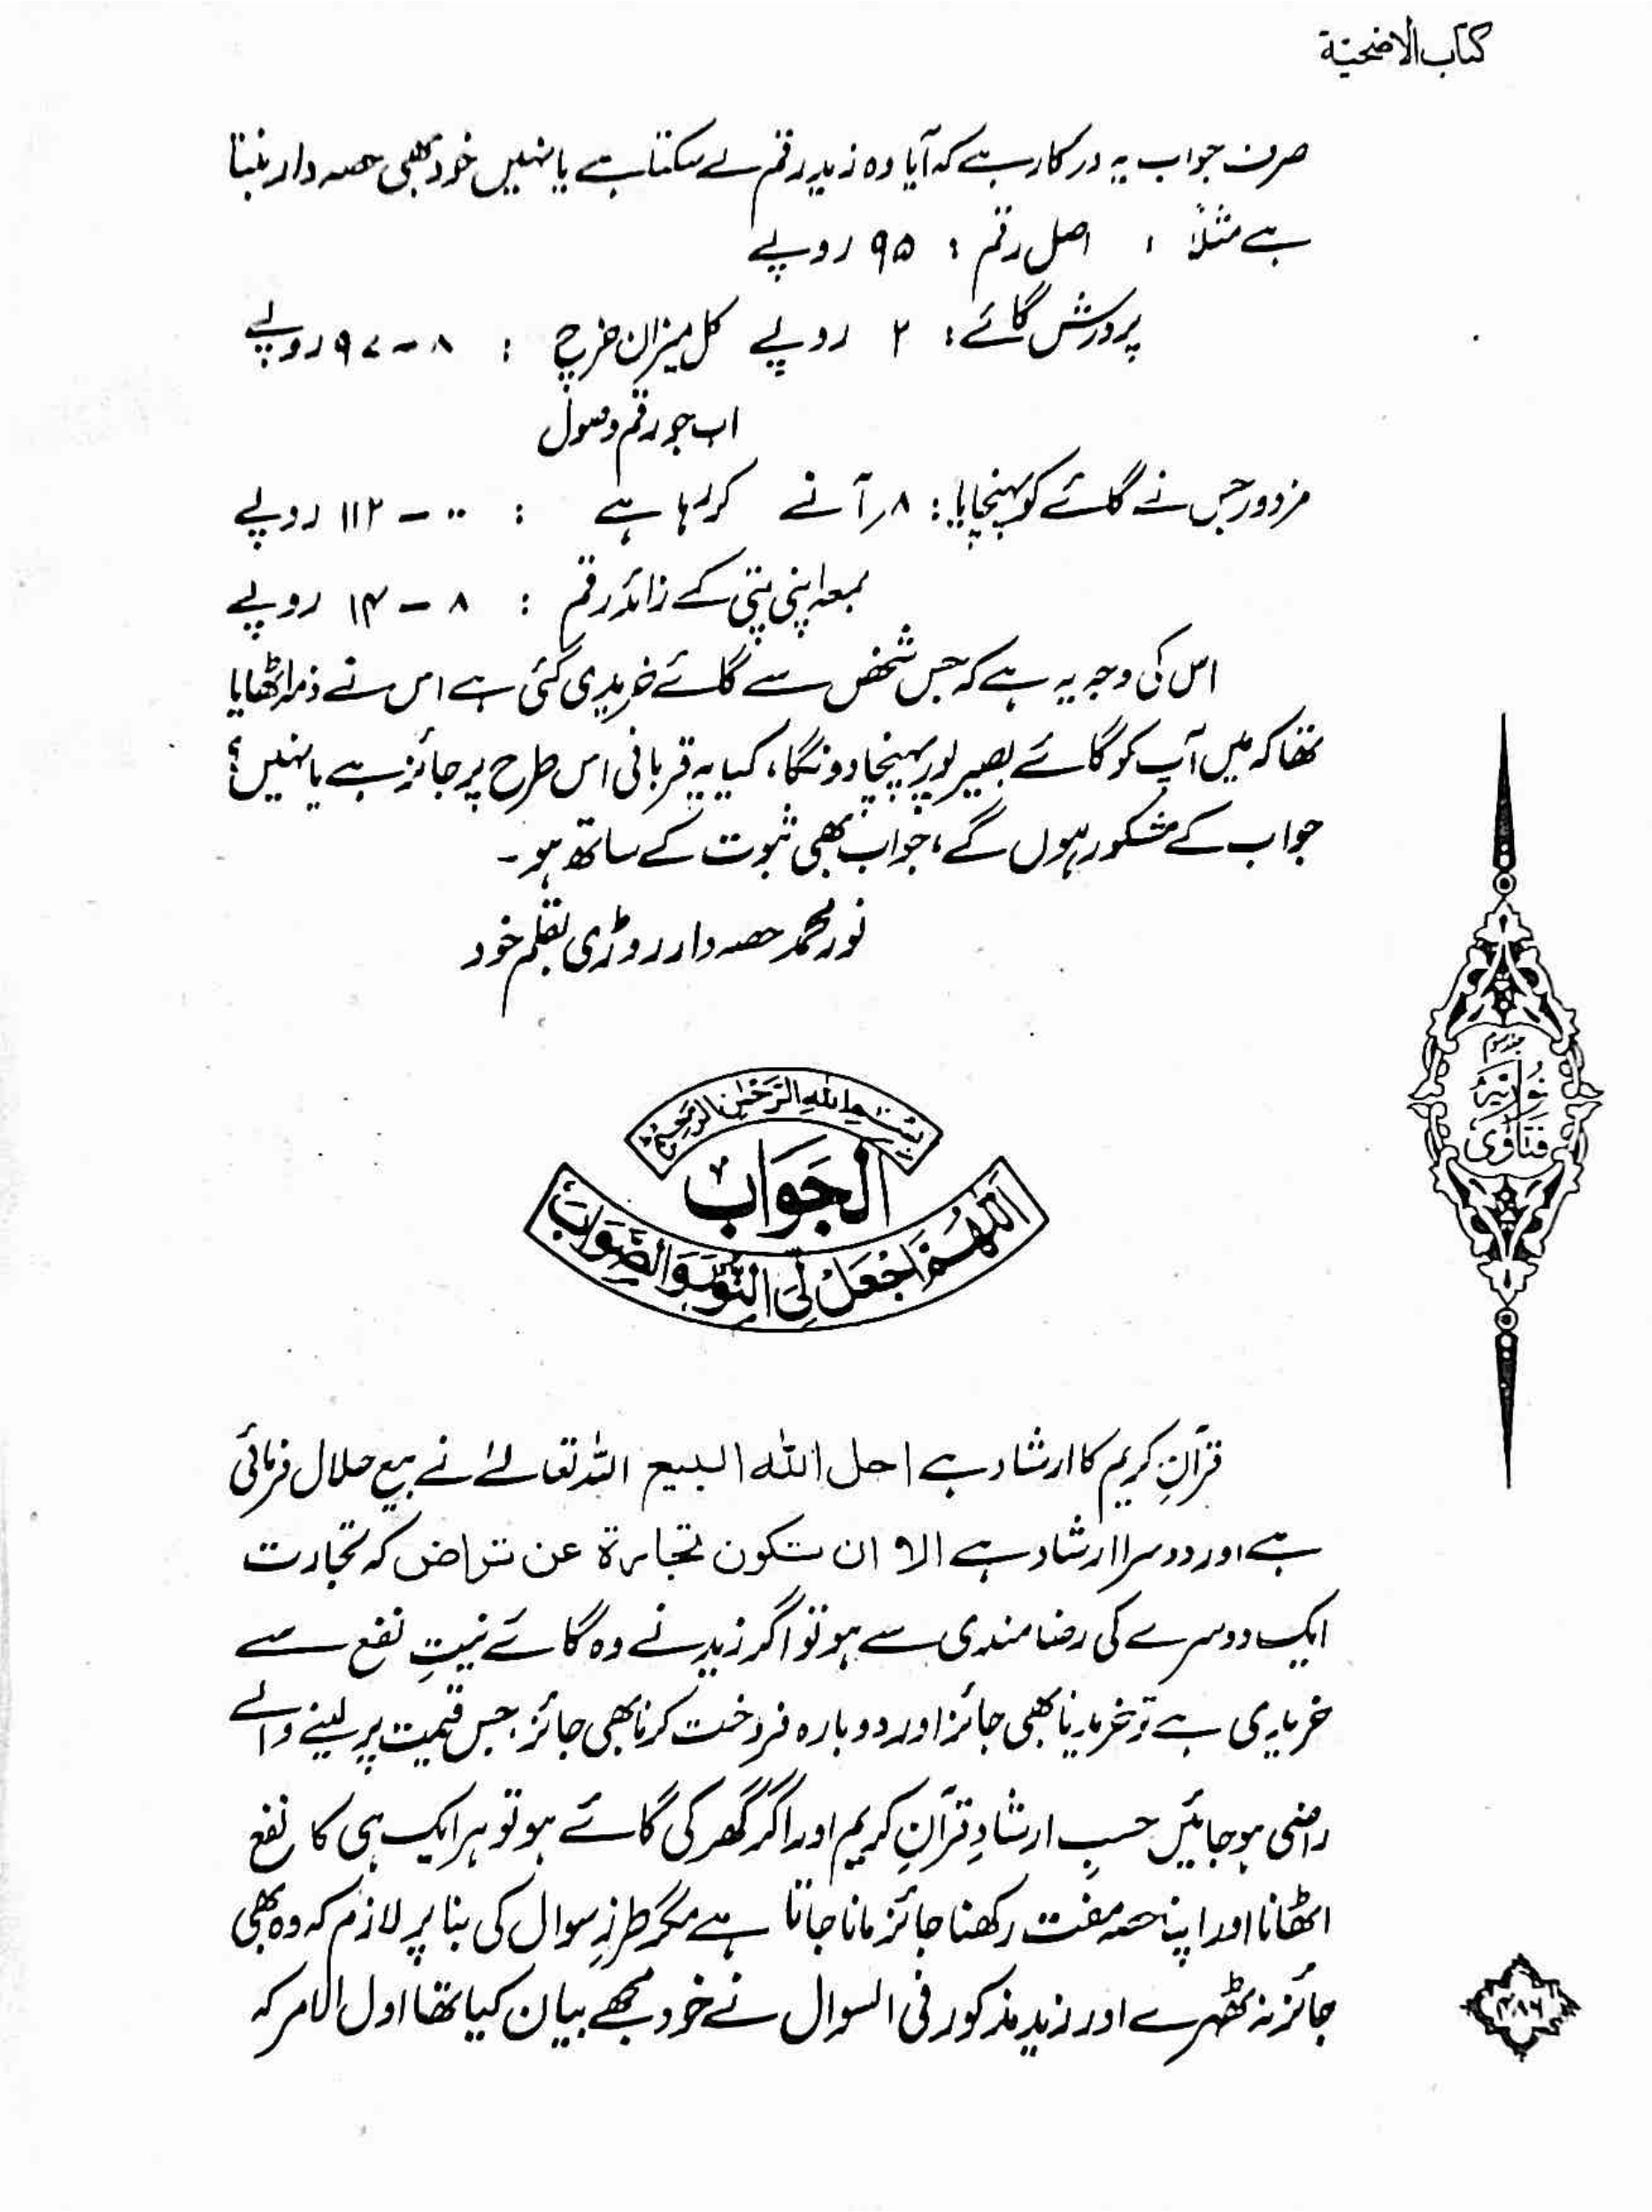 کتاب الاضحیّة
صرف جواب یہ درکار ہے کہ آیا وہ زید رقم لے سکتا ہے یا نہیں خود بھی حصہ دار بنتا
ہے مثلاً ، اصل رقم : ۹۵ روپے
پرورش گائے : ۲ روپے کل میزان خرچ : ۸ – ۹۷ روپے
اب جو رقم وصول
مزدور جس نے گائے کو پہنچایا : ۸ر آنے کر رہا ہے : ۰۰ – ۱۱۲ روپے
بمعہ اپنی پتی کے زائد رقم : ۸ – ۱۴ روپے
اس کی وجہ یہ ہے کہ جس شخص سے گائے خریدی گئی ہے اس نے ذمہ اٹھایا
تھا کہ میں آپ کو گائے بصیر پور پہنچا دونگا، کیا یہ قربانی اس طرح پر جائز ہے یا نہیں؟
جواب کے مشکور ہوں گے، جواب بھی ثبوت کے ساتھ ہو ۔
نور محمد حصہ دار روڑی بقلم خود
بِسْمِ اللهِ الرَّحْمٰنِ الرَّحِيْمِ
الجَوَاب
اَللّٰهُمَّ اجْعَلْ لِيَ النُّوْرَ وَالصَّوَابَ
فتاوٰی نوریہ
قرآنِ کریم کا ارشاد ہے احل اللہ البیع اللہ تعالےٰ نے بیع حلال فرمائی
ہے اور دوسرا ارشاد ہے الا ان تکون تجارة عن تراض کہ تجارت
ایک دوسرے کی رضامندی سے ہو تو اگر زید نے وہ گائے نیتِ نفع سے
خریدی ہے تو خریدنا بھی جائز اور دوبارہ فروخت کرنا بھی جائز، جس قیمت پر لینے والے
راضی ہو جائیں حسبِ ارشادِ قرآنِ کریم اور اگر گھر کی گائے ہو تو ہر ایک ہی کا نفع
اٹھانا اور اپنا حصہ مفت رکھنا جائز مانا جاتا ہے مگر طرزِ سوال کی بنا پر لازم کہ وہ بھی
جائز نہ ٹھہرے اور زید مذکور فی السوال نے خود مجھے بیان کیا تھا اول الامر کہ